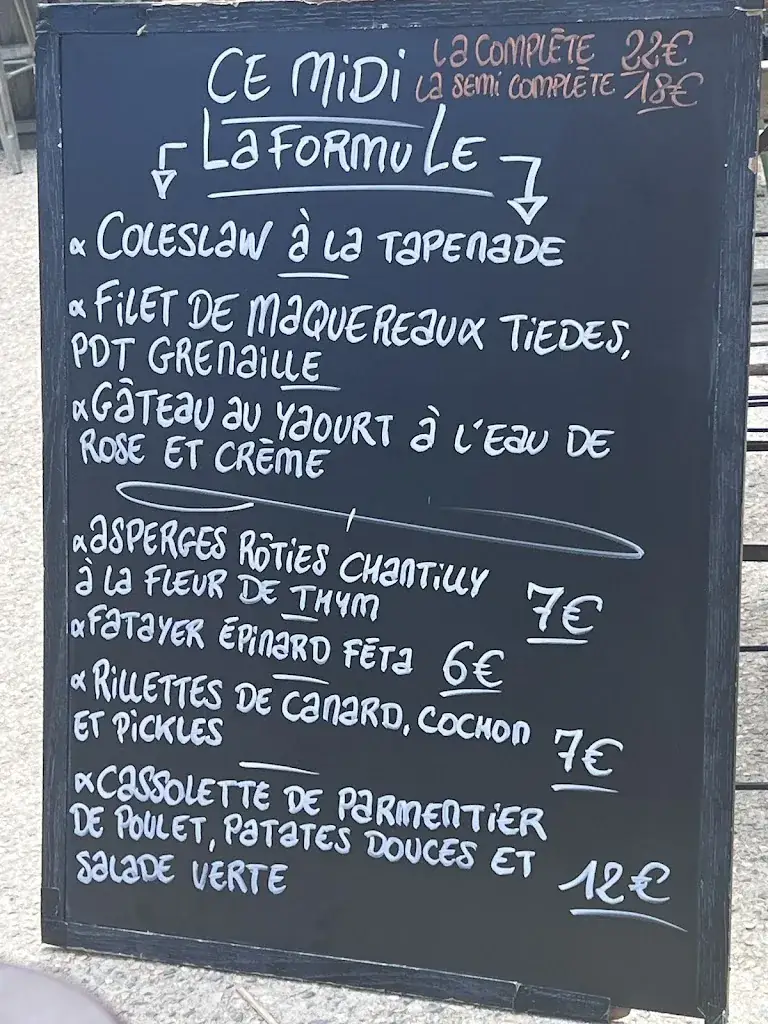 CE MIDI
LA COMPLÈTE 22€
LA SEMI COMPLÈTE 18€
LA FORMULE
COLESLAW à LA TAPENADE
FILET DE MAQUEREAUX TIEDES,
PDT GRENAILLE
GÂTEAU AU YAOURT à L'EAU DE
ROSE ET CRÈME
ASPERGES RÔTIES CHANTILLY
à LA FLEUR DE THYM 7€
FATAYER ÉPINARD FÉTA 6€
RILLETTES DE CANARD, COCHON
ET PICKLES 7€
CASSOLETTE DE PARMENTIER
DE POULET, PATATES DOUCES ET
SALADE VERTE 12€